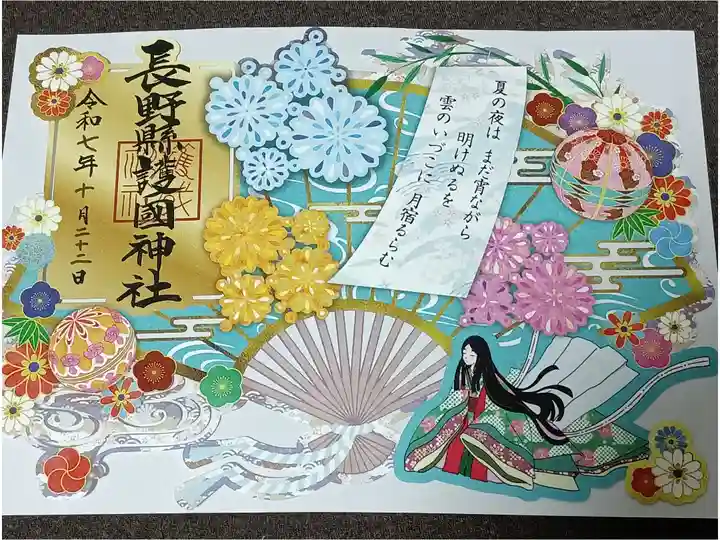 長野縣護國神社
令和七年十月二十二日
夏の夜は まだ宵ながら
明けぬるを
雲のいづこに 月宿るらむ